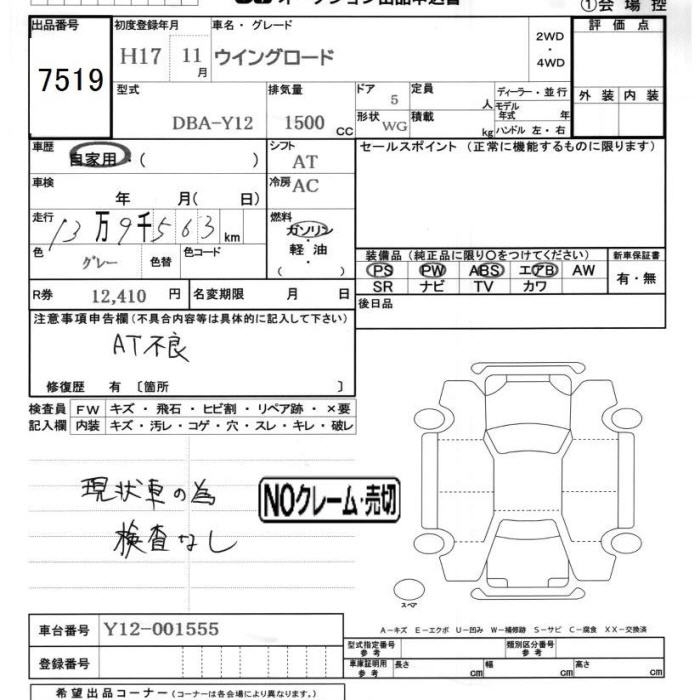 ①会場控
出品番号
7519
初度登録年月
H17 11月
車名・グレード
ウイングロード
2WD
・
4WD
評価点
外装 内装
型式
DBA-Y12
排気量
1500 CC
ドア
5
形状
WG
定員
人
積載
kg
ディーラー・並行
モデル年式 年
ハンドル 左・右
車歴
自家用・( )
シフト
AT
車検
年 月( 日)
冷房
AC
走行
13万9千563km
燃料
ガソリン
軽油
・
( )
色
グレー
色替
色コード
R券 12,410 円
名変期限 月 日
セールスポイント(正常に機能するものに限ります)
装備品(純正品に限り○をつけてください)
PS PW ABS エアB AW
SR ナビ TV カワ
新車保証書
有・無
後日品
注意事項申告欄(不具合内容等は具体的に記入して下さい)
AT不良
修復歴 有 〔箇所 〕
検査員記入欄
FW キズ・飛石・ヒビ割・リペア跡・×要
内装 キズ・汚レ・コゲ・穴・スレ・キレ・破レ
現状車の為
検査なし
NOクレーム・売切
スペア
A-キズ E-エクボ U-凹み W-補修跡 S-サビ C-腐食 XX-交換済
車台番号 Y12-001555
登録番号
型式指定番号 参考
類別区分番号 参考
車庫証明用 参考 長さ cm 幅 cm 高さ cm
希望出品コーナー(コーナーは各会場により異なります。)